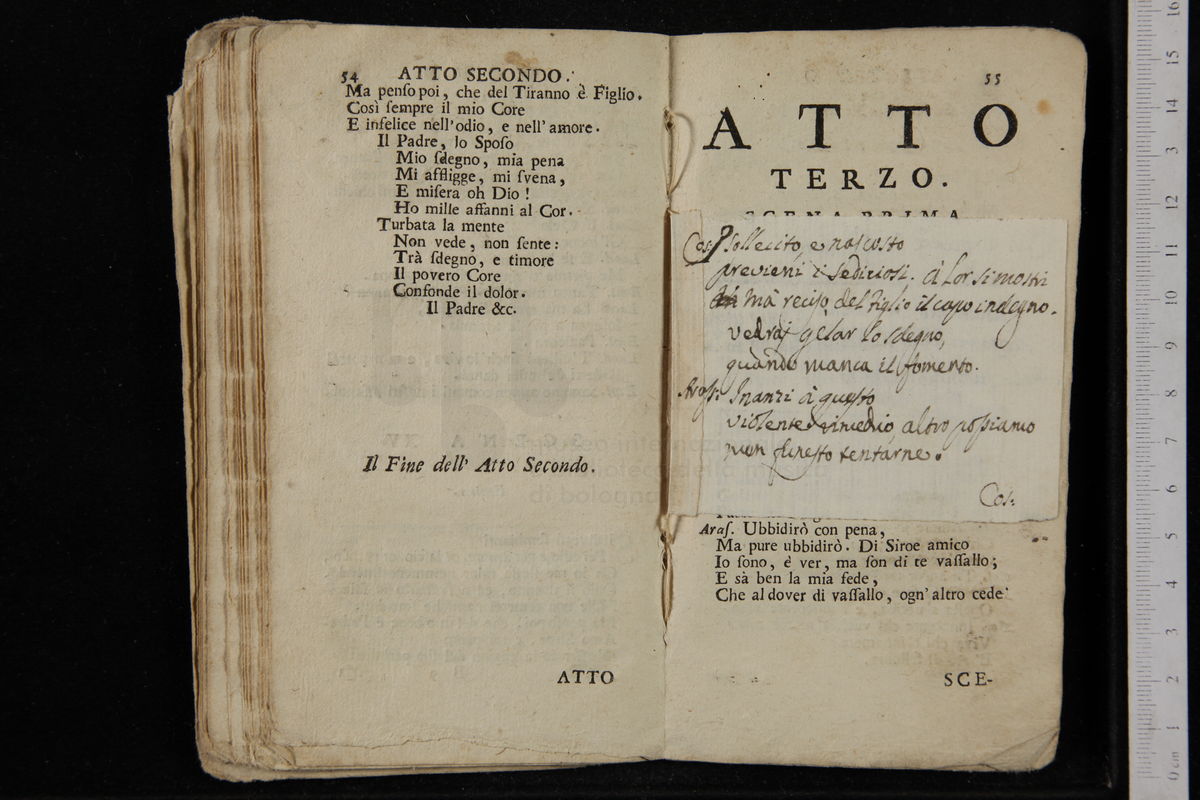 54 ATTO SECONDO.
Ma penſo poi, che del Tiranno è Figlio.
Così ſempre il mio Core
E infelice nell'odio, e nell'amore.
Il Padre, lo Spoſo
Mio ſdegno, mia pena
Mi affligge, mi ſvena,
E miſera oh Dio!
Ho mille affanni al Cor.
Turbata la mente
Non vede, non ſente:
Trà ſdegno, e timore
Il povero Core
Confonde il dolor.
Il Padre &c.
Il Fine dell' Atto Secondo.
ATTO
55
ATTO
TERZO.
SCENA PRIMA
Cos: Sollecito, e nascosto
previeni i sediziosi. à lor si mostri
mà reciso del figlio il capo indegno.
vedrai gelar lo sdegno,
quando manca il fomento.
Aras: Inanzi à questo
violente rimedio, altro possiamo
men funesto tentarne.
Cos:
Araſ. Ubbidirò con pena,
Ma pure ubbidirò. Di Siroe amico
Io ſono, è ver, ma ſon di te vaſſallo;
E sà ben la mia fede,
Che al dover di vaſſallo, ogn'altro cede
SCE-
museo internazionale
biblioteca della musica
di bologna
16
15
14
13
12
11
10
9
8
7
6
5
4
3
2
1
0 cm